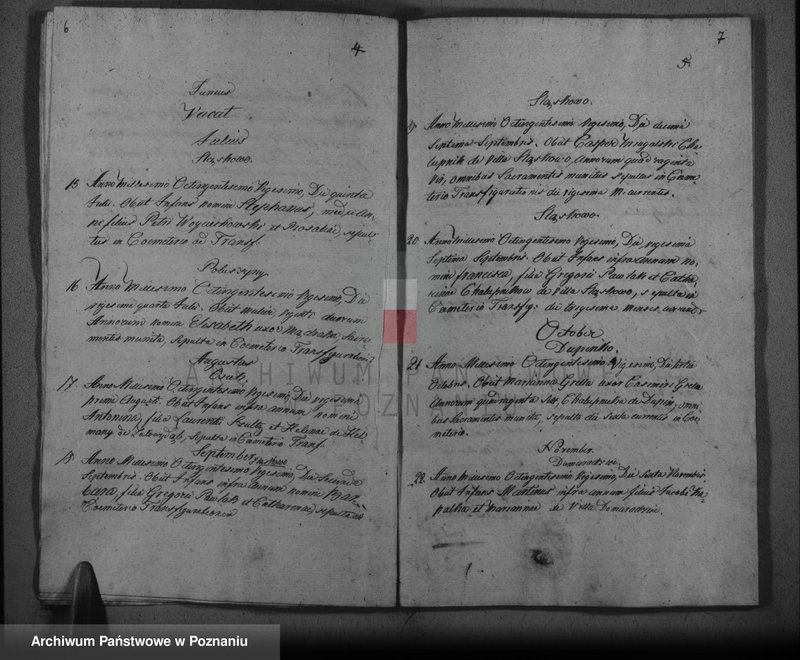 6
4
Junius
Vacat
Julius
Słąskowo.
15 Anno Millesimo Octingentesimo Vigesimo, Die quinta
Julii. Obiit Infans nomine Stephanus, medii An-
ni filius Petri Woyciechowski et Rosaliae, sepul-
tus in Coemeterio ad Transf.
16 Anno Millesimo Octingentesimo Vigesimo, Die
vigesima quarta Julii. Obiit mulier viginti duorum
Annorum nomine Elisabeth uxor Sacra-
mentis munita, sepulta in Coemeterio Transfigurationis
Augustus
17 Anno Millesimo Octingentesimo Vigesimo, Die vigesima
prima Augusti. Obiit Infans infra annum nomine
Antonina, filia Laurentii et Helenae de
sepulta in Cometerio Transf.
September
18 Anno Millesimo Octingentesimo Vigesimo, Die Secunda
Septembris. Obiit Infans infra annum nomine
filia Gregorii Pawlak et Catharinae, sepulta in
Coemeterio Transfigurationis
7
5.
Słąskowo.
19 Anno Millesimo Octingentesimo Vigesimo, Die decima
Septima Septembris. Obiit Casper Cha-
lupnik de Villa Słąskowo, Annorum quadraginta
omnibus Sacramentis munitus sepultus in Coeme-
terio Transfigurationis die vigesima M. currentis.
Słąskowo.
20 Anno Millesimo Octingentesimo Vigesimo, Die vigesima
Septima Septembris. Obiit Infans infra annum no-
mine Francisca, filia Gregorii Pawlak et Catha-
rinae Chalupnikow de Villa Słąskowo, sepulta in
Cometerio Transfig: die trigesima mensis currentis
October
Dupinko.
21 Anno Millesimo Octingentesimo Vigesimo, Die
Octobris. Obiit Marianna Grella uxor Casimiri Grella
Annorum quadraginta Sex, Chalupnika de Dupin, omni-
bus Sacramentis munita, sepulta die Sexta currentis in Coe-
meterio.
November.
22 Anno Millesimo Octingentesimo Vigesimo, Die Sexta Novembris.
Obiit Infans Martinus infra annum filius Jacobi
et Mariannae de Villa
ARCHIWUM PAŃSTWOWE
W POZNANIU
Archiwum Państwowe w Poznaniu